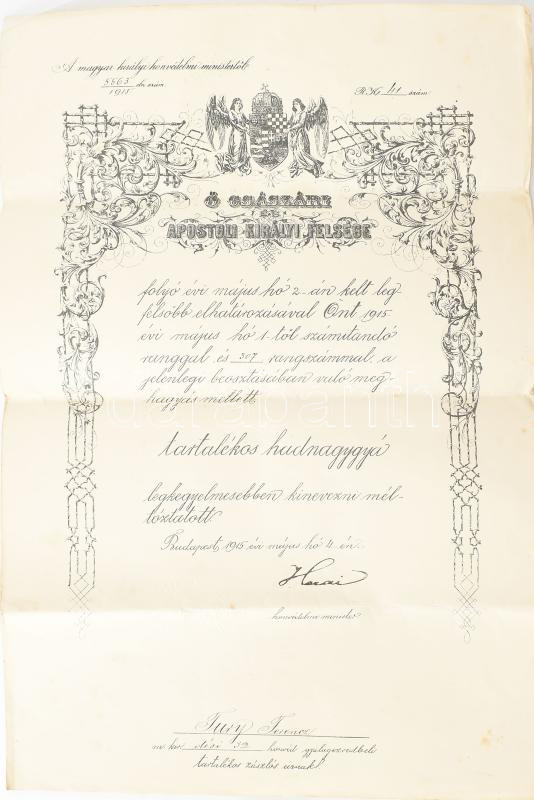 A magyar királyi honvédelmi ministertől.
5863 eln. szám
1915
R. K. 41 szám
Ő CSÁSZÁRI
ÉS
APOSTOLI KIRÁLYI FELSÉGE
folyó évi május hó 2-án kelt leg-
felsőbb elhatározásával Önt 1915.
évi május hó 1-től számítandó
ranggal és 307 rangszámmal, a
jelenlegi beosztásában való meg-
hagyás mellett
darabanth
tartalékos hadnagygyá
legkegyelmesebben kinevezni mél-
tóztatott.
Budapest, 1915 évi május hó 4 én.
Hazai
honvédelmi minister
Fury Ferencz
m. kir. dési 32 honvéd gyalogezredbeli
tartalékos zászlós urnak!